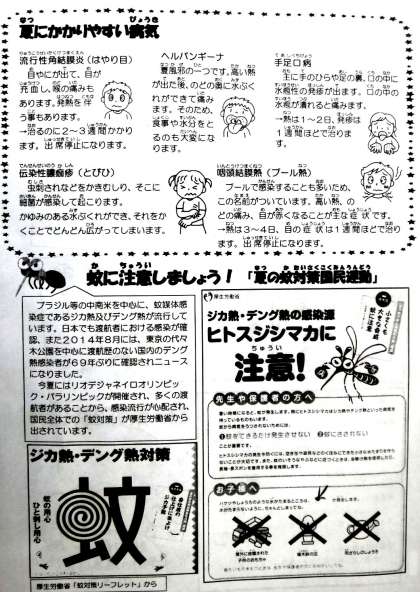 夏にかかりやすい病気
流行性角結膜炎（はやり目）
目やにが出て、目が
充血し、喉の痛みも
あります。発熱を伴
う事もあります。
→治るのに２～３週間かかり
ます。出席停止になります。
ヘルパンギーナ
夏風邪の一つです。高い熱
が出た後、のどの奥に水ぶく
れができて痛み
ます。そのため、
食事や水分をと
るのも大変にな
ります。
手足口病
主に手のひらや足の裏、口の中に
水疱性の発疹が出ます。口の中の
水疱が潰れると痛みます。
→熱は１～２日、発疹は
１週間ほどで治りま
す。
伝染性膿痂疹（とびひ）
虫刺されなどをかきむしり、そこに
細菌が感染して起こります。
かゆみのある水ぶくれができ、それをか
くことでどんどん広がってしまいます。
咽頭結膜熱（プール熱）
プールで感染することも多いため、
この名前がついています。高い熱、の
どの痛み、目が赤くなることが主な症状です。
→熱は３～４日、目の症状は１週間ほどで治り
ます。出席停止になります。
蚊に注意しましょう！「夏の蚊対策国民運動」
ブラジル等の中南米を中心に、蚊媒体感
染症であるジカ熱及びデング熱が流行して
います。日本でも渡航者における感染が確
認、また２０１４年８月には、東京の代々
木公園を中心に渡航歴のない国内のデング
熱感染者が６９年ぶりに確認されニュース
になりました。
今夏にはリオデジャネイロオリンピッ
ク・パラリンピックが開催され、多くの渡
航者があることから、感染流行が心配され、
国民全体での「蚊対策」が厚生労働省から
出されています。
ジカ熱・デング熱対策
蚊の用心
ひと刺し用心
蚊
厚生労働省「蚊対策リーフレット」から
厚生労働省
ジカ熱・デング熱の感染源
ヒトスジシマカに
注意!
小さくても
大きな脅威
蚊に注意
先生や保護者の方へ
①蚊をできるだけ発生させない ②蚊にさされない
お子様へ